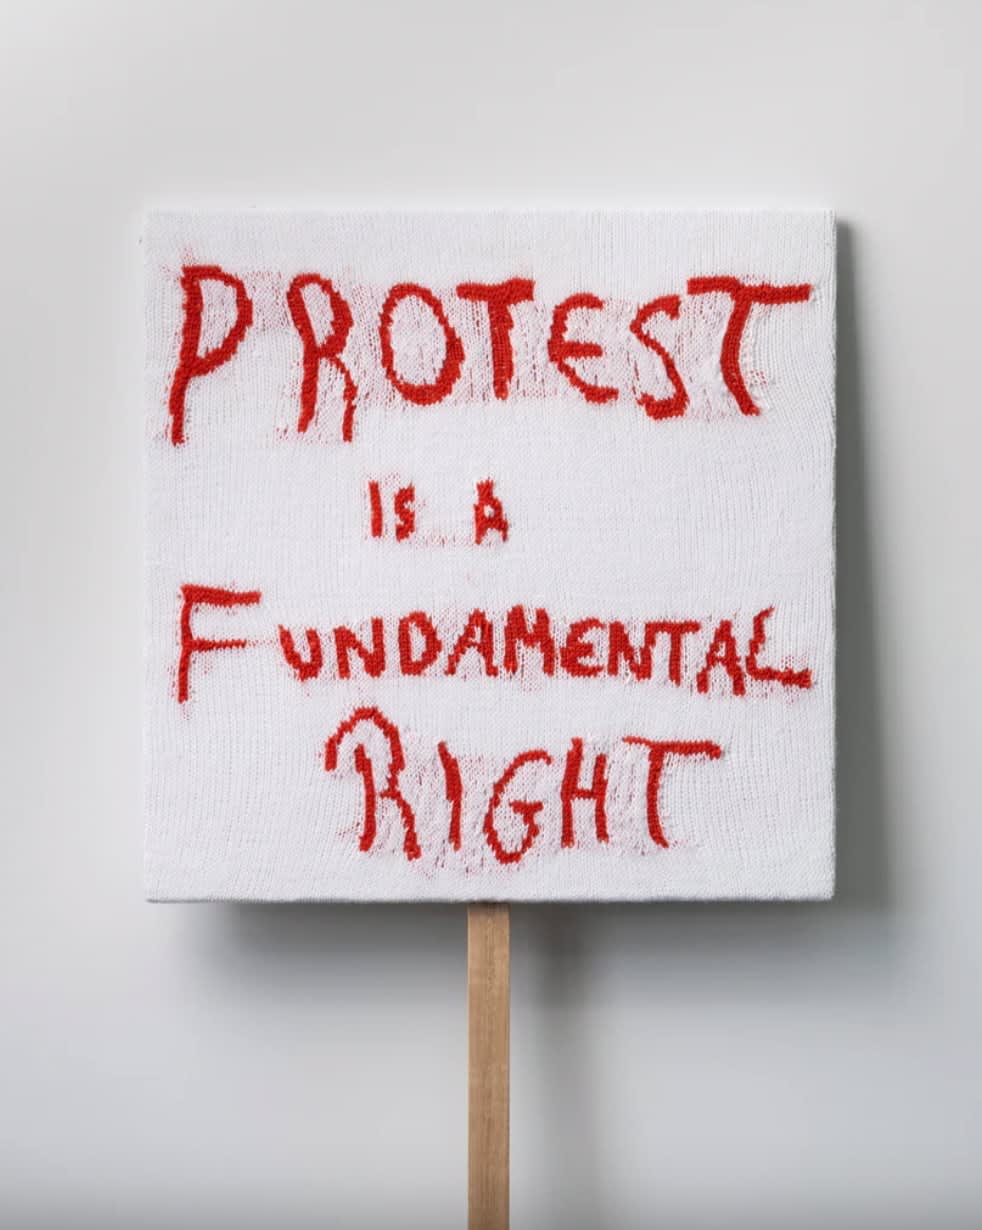 PROTEST
IS A
FUNDAMENTAL
RIGHT